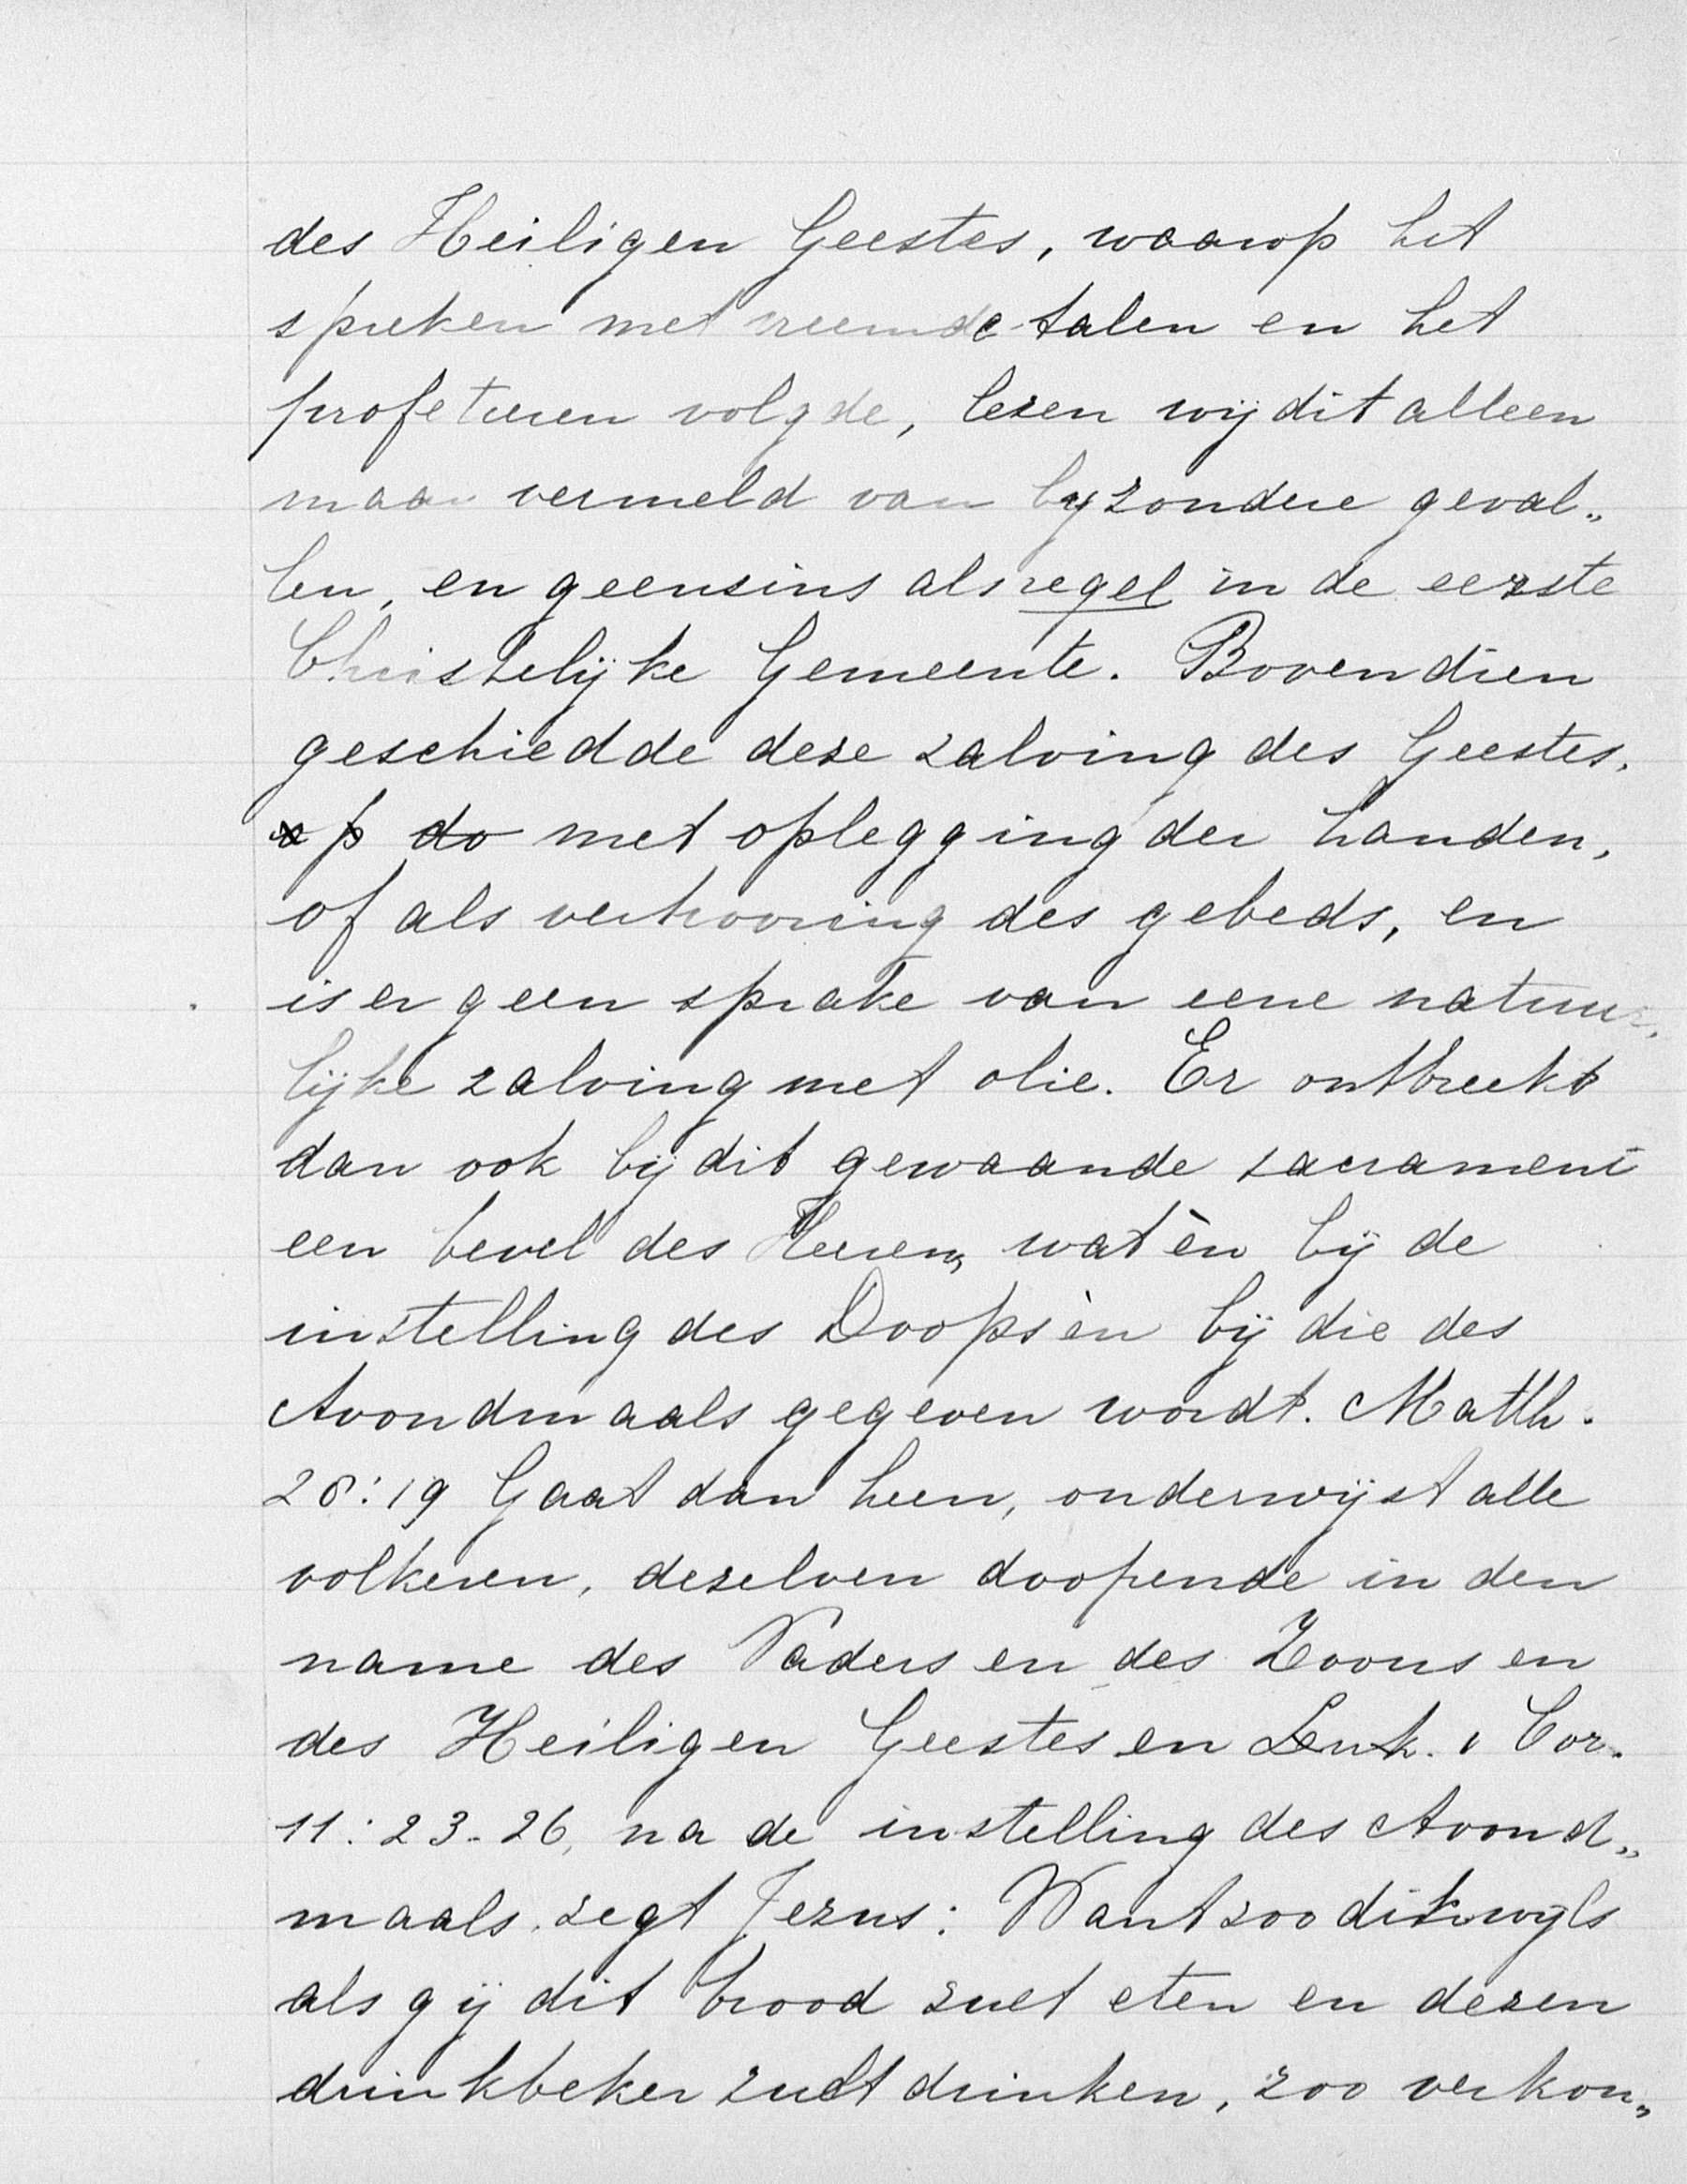 des Heiligen Geestes, waarop het
spreken met vreemde talen en het
profeteeren volgde, lezen wij dit alleen
maar vermeld van byzondere geval„
len, en geenszins als regel in de eerste
Christelijke Gemeente. Bovendien
geschiedde deze zalving des Geestes,
op do met oplegging der handen,
of als verhooring des gebeds, en
is er geen sprake van eene natuur„
lijke zalving met olie. Er ontbreekt
dan ook bij dit gewaande sacrament
een bevel des Heeren, wat èn bij de
instelling des Doops èn bij die des
Avondmaals gegeven wordt. Matth.
28:19 Gaat dan heen, onderwijst alle
volkeren, dezelven doopende in den
name des Vaders en des Zoons en
des Heiligen Geestes en Luk. 1 Cor.
11:23-26, na de instelling des Avond„
maals zegt Jezus: Want zoo dikwijls
als gij dit brood zult eten en dezen
drinkbeker zult drinken, zoo verkon„